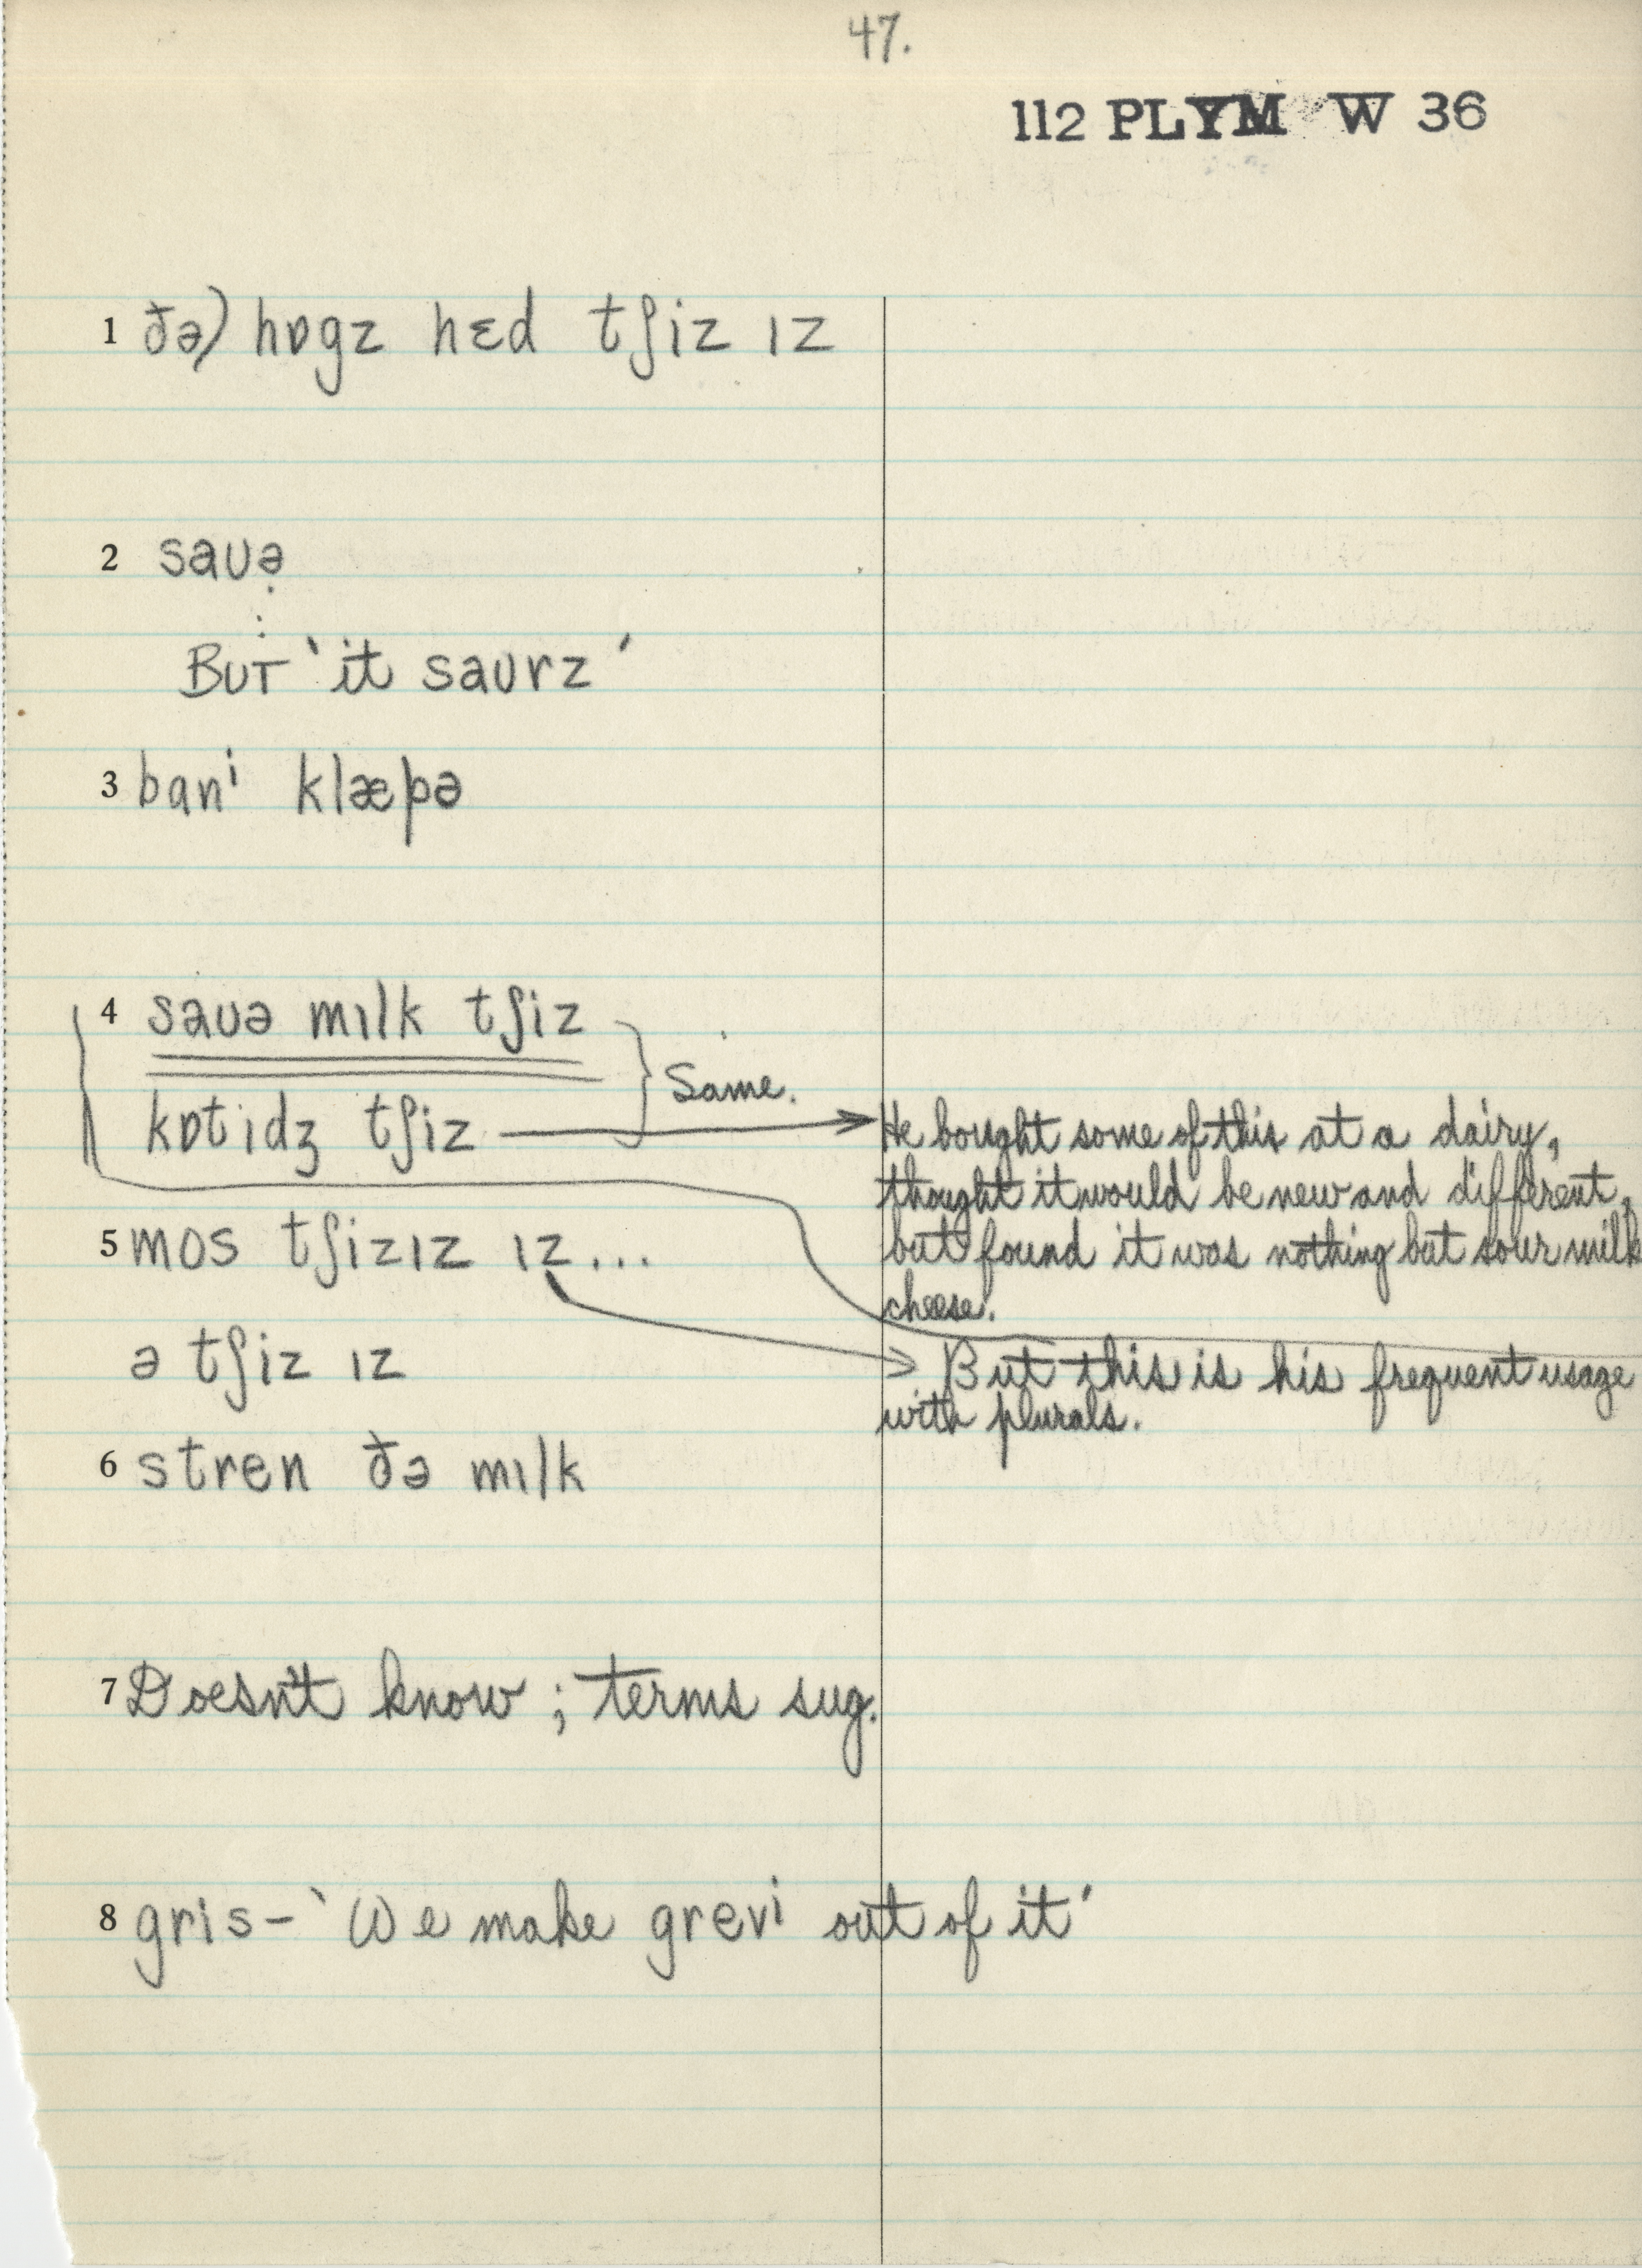 47.
112 PLYM W 36
1 ðə) hɒgz hɛd tʃiz ɪz
2 saʊə
BUT 'it saʊrz'
3 banⁱ klæpə
4 saʊə mɪlk tʃiz
Same.
kɒtidʒ tʃiz
He bought some of this at a dairy,
thought it would be new and different,
but found it was nothing but sour milk
cheese.
5 mos tʃizɪz ɪz...
ə tʃiz ɪz
But this is his frequent usage
with plurals.
6 stren ðə mɪlk
7 Doesn't know; terms sug.
8 gris – 'We make grevⁱ out of it'